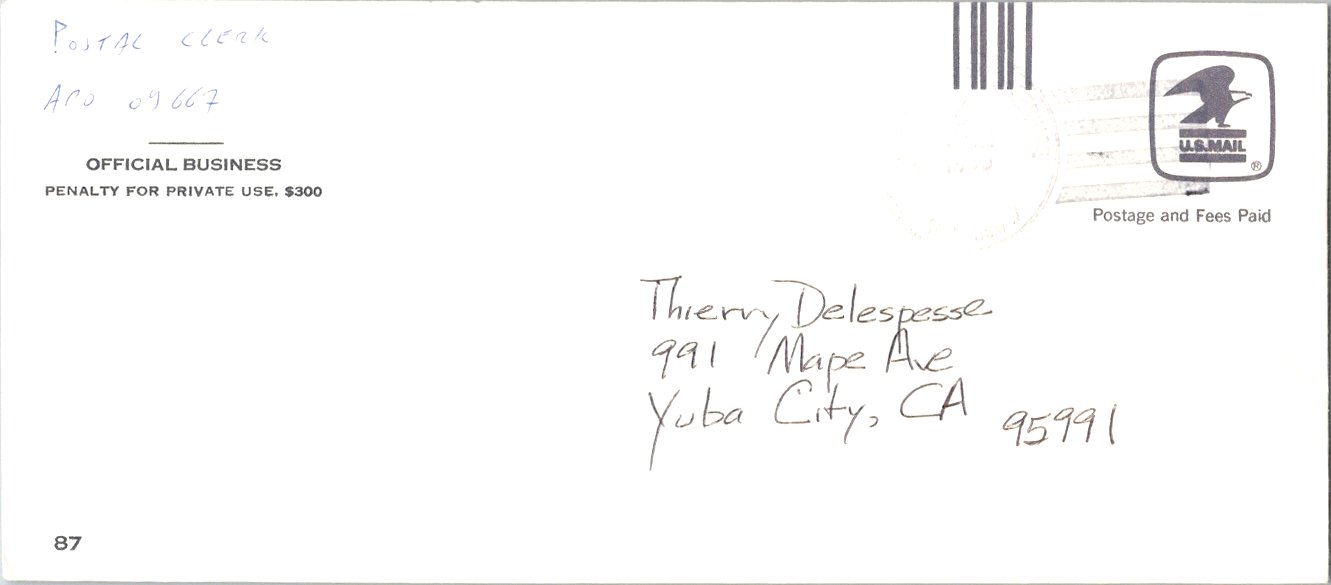 POSTAL CLERK
APO 09667
OFFICIAL BUSINESS
PENALTY FOR PRIVATE USE, $300
U.S.MAIL
®
Postage and Fees Paid
Thierry Delespesse
991 Mape Ave
Yuba City, CA 95991
87